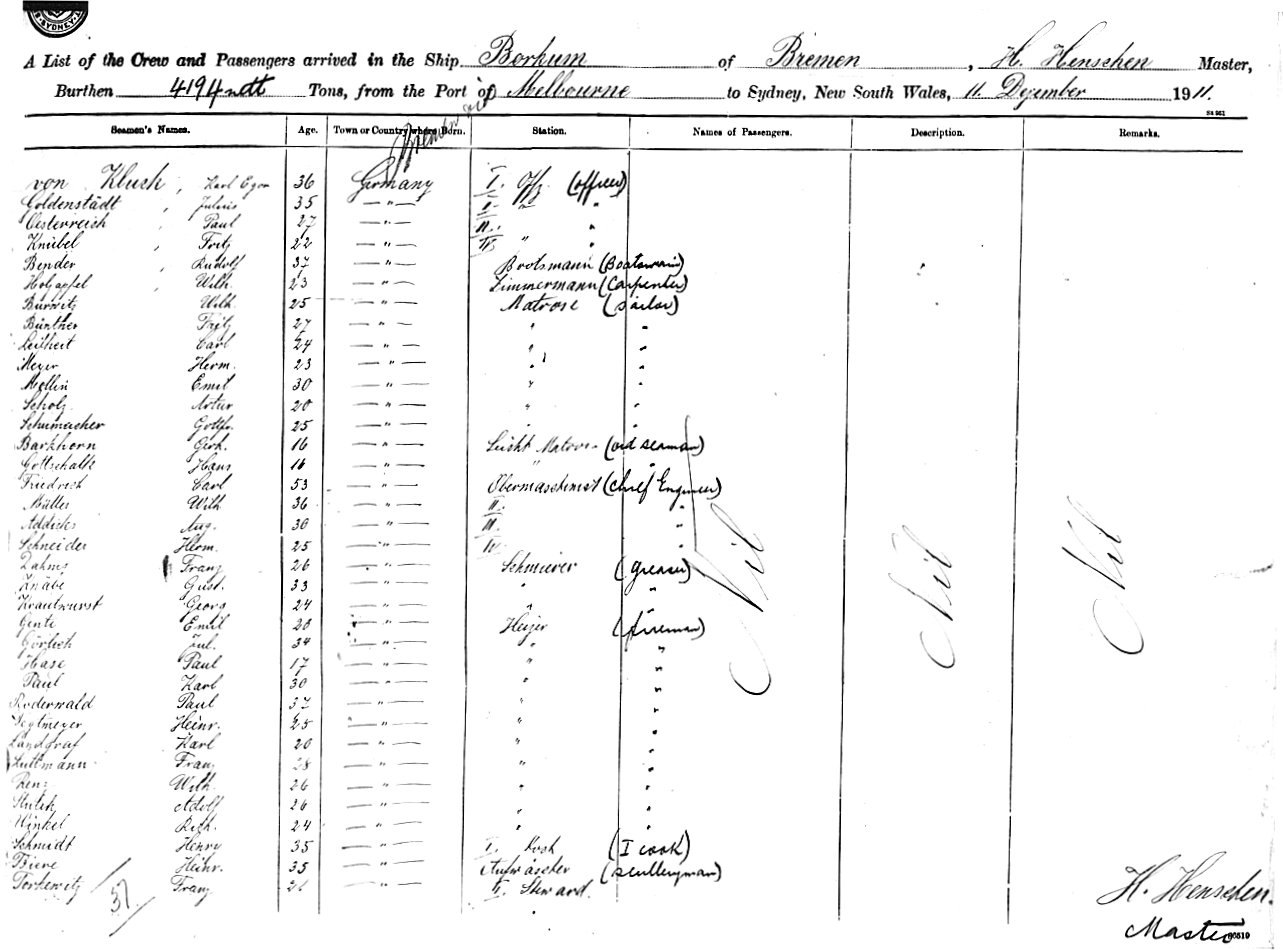 SYDNEY
A List of the Crew and Passengers arrived in the Ship Borkum of Bremen, H. Henschen Master,
Burthen 4194 nett Tons, from the Port of Melbourne to Sydney, New South Wales, 11 Dezember 1911.
Sa 951
Seamen's Names. Age. Town or Country where Born. Station. Names of Passengers. Description. Remarks.
Bremen
von Kluck, Karl Egon 36 Germany I. Off. (officer)
Goldenstädt, Julius 35 — " — II. " "
Oesterreich Paul 27 — " — "
Knübel, Fritz 22 — " — " "
Bender, Rudolf 37 — " — Bootsmann (Boatswain)
Holzapfel, Wilh. 23 — " — Zimmermann (Carpenter)
Burwitz Wilh 25 — " — Matrose (Sailor)
Bünther Fritz 27 — " — " "
Leilheit Carl 24 — " — " "
Meyer Herm. 23 — " — " "
Mollin Emil 30 — " — " "
Scholz Artur 20 — " — " "
Schumacher Gottfr. 25 — " —
Barkhorn Gerh. 16 — " — Leicht Matrose (ord seaman)
Gottschalk Hans 16 — " — " "
Friedrich Carl 53 — " — Obermaschinist (Chief Engineer)
Müller Wilh 36 — " — II. "
Addicks Aug. 30 — " — III. "
Schneider Herm. 25 — " — IV. "
Dahms Franz 26 — " — Schmierer (greaser)
Knäbe Gust. 33 — " — " "
Krautwurst Georg 24 — " — " "
Gente Emil 20 — " — Heizer (fireman)
Görlich Jul. 34 — " — " "
Hase Paul 17 — " — " "
Paul Karl 30 — " — " "
Roderwald Paul 37 — " — " "
Vogtmeyer Heinr. 25 — " — " "
Landgraf Karl 20 — " — " "
Luttmann Franz 28 — " — " "
Renz Wilh. 26 — " — " "
Adolf 26 — " — " "
Winkel Rich. 24 — " — " "
Schmidt Henry 35 — " — I. Koch (I cook)
Biere Heinr. 35 — " — Aufwäscher (sculleryman)
Torkewitz Franz — " — Steward.
37
Nil Nil Nil
H. Henschen.
Master